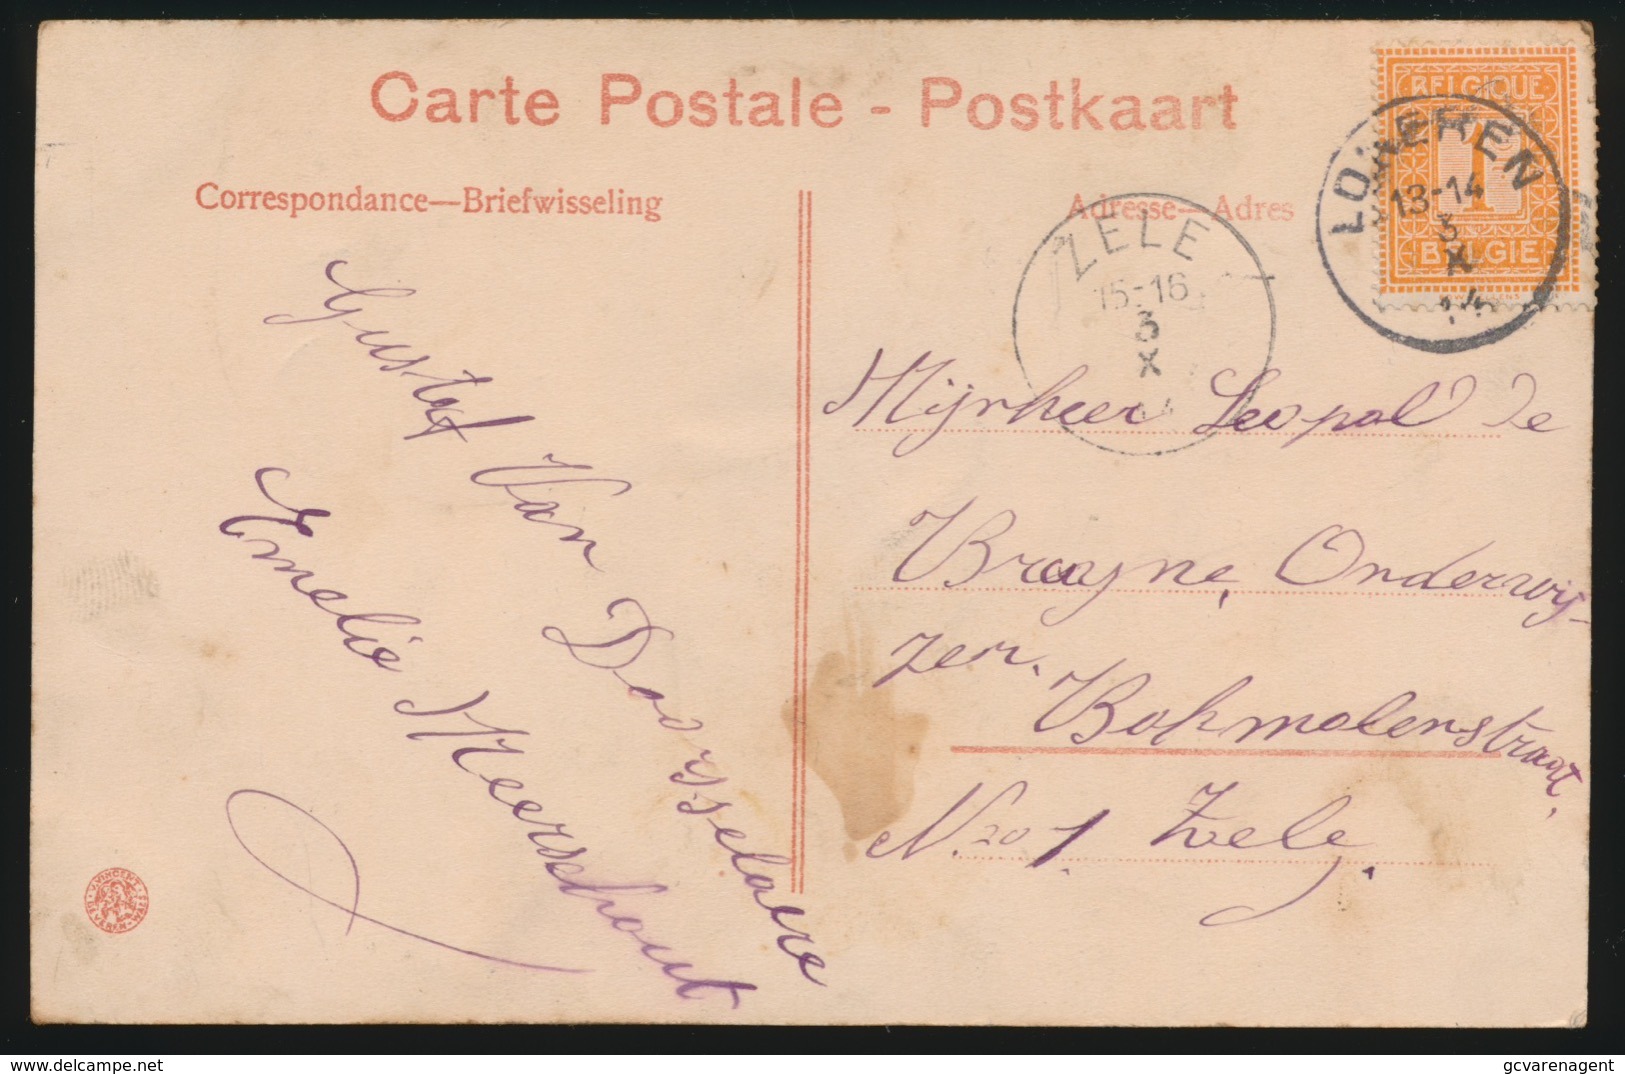 Carte Postale - Postkaart
Correspondance—Briefwisseling
Adresse—Adres
BELGIQUE
1
BELGIE
LOKEREN
13-14
3
X
14
ZELE
15-16
3
X
14
Gustaf Van Doorsselaere
Emelie Meerschout
Mijnheer Leopol De
Bruyne, Onderwij-
zer.
Bokmolenstraat,
N.ro 1. Zele,
V. VINCENT
delcampe.net
gcvarenagent